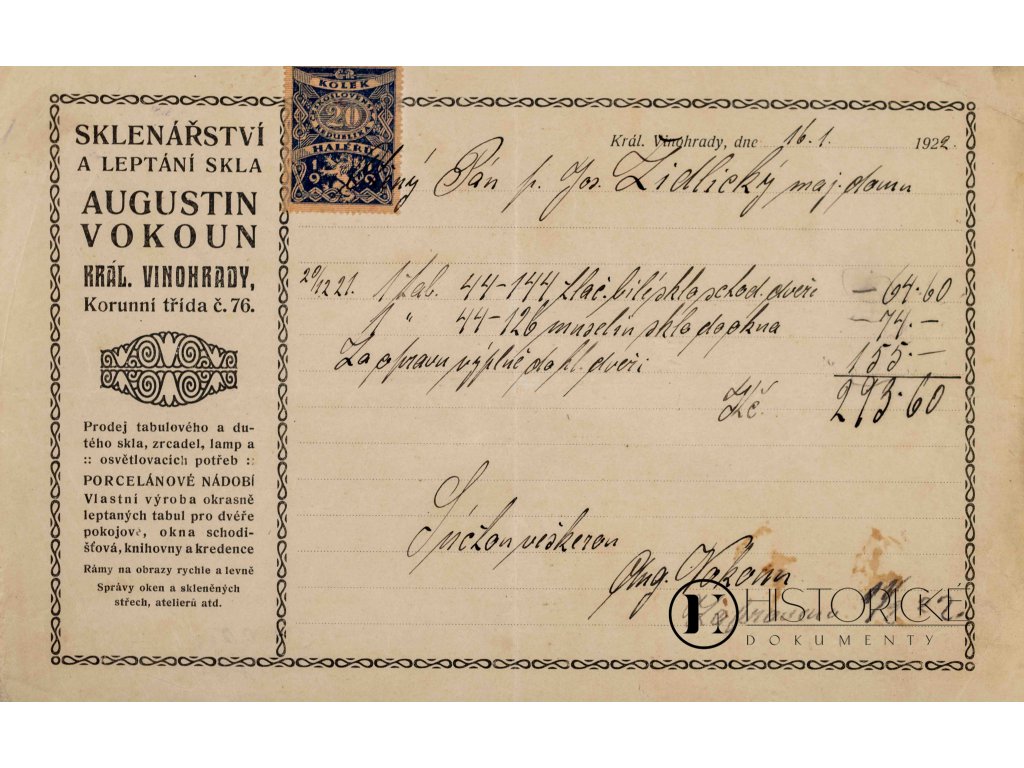 SKLENÁŘSTVÍ
A LEPTÁNÍ SKLA
AUGUSTIN
VOKOUN
KRÁL. VINOHRADY,
Korunní třída č. 76.
Prodej tabulového a du-
tého skla, zrcadel, lamp a
:: osvětlovacích potřeb ::
PORCELÁNOVÉ NÁDOBÍ
Vlastní výroba okrasně
leptaných tabul pro dvéře
pokojové, okna schodi-
šťová, knihovny a kredence
Rámy na obrazy rychle a levně
Správy oken a skleněných
střech, atelierů atd.
KOLEK
20
HALÉŘŮ
Král. Vinohrady, dne 16.1. 1922.
Pán p. Jos. Židlický maj. domu
20/12 21. 1 tab. 44-144 tlač. bílé skla schod. dveří — 64.60
1 " 44-126 muselin skla do okna — 74.—
Za opravu výplně do hl. dveří 155.—
Kč. 293.60
S úctou veškerou
Aug. Vokoun
HISTORICKÉ
DOKUMENTY